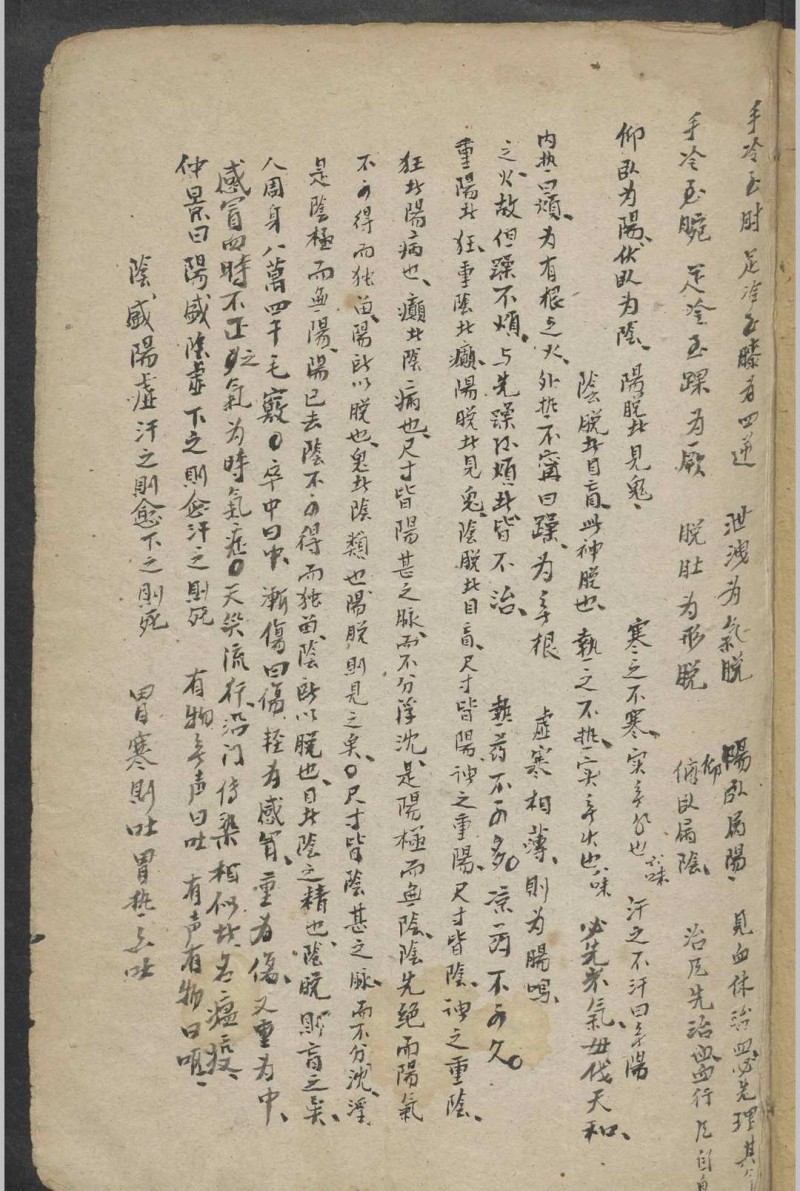 手冷至肘 足冷至膝為四逆 泄洩为氣脱 陽臥屬陽 見血休治血必先理其
手冷至腕 足冷至踝为厥 脱肚为形脱 俯臥屬陰 治风先治血血行风自
仰臥为陽、伏臥为陰、陽脱者見鬼、 寒之不寒、实無水也六味 汗之不汗曰無陽
陰脱者目盲、此神脱也 熱之不热实無火也八味 必先歲氣、毋伐天和、
内热曰煩、为有根之火、外热不寧曰躁、为無根 虚寒相薄、則为腸鳴、
之火、故但躁不煩、与先躁後煩者皆不治、 熱药不可多。凉药不可久。
重陽者狂、重陰者癲、陽脱者見鬼、陰脱者目盲、尺寸皆陽、謂之重陽、尺寸皆陰、謂之重陰、
狂者陽病也、癲者陰病也、尺寸皆陽甚之脉、而不分浮沈、是陽極而無陰、陰先絶而陽氣
不可得而独留、陽所以脱也、鬼者陰類也、陽脱則見之矣、。尺寸皆陰甚之脉、而不分沈浮
是陰極而無陽、陽已去陰不可得而独留、陰所以脱也、目者陰之精也、陰脱則盲之矣、
人周身八萬四千毛竅。卒中曰中、漸傷曰傷、軽为感冒、重为傷、又重为中、
感冒四時不正之氣为時氣症。天災流行、沿门傳染相似者名瘟疫、
仲景曰陽盛陰虚下之則愈汗之則死 有物無声曰吐 有声有物曰嘔、
陰盛陽虚汗之則愈下之則死 胃寒則吐胃热亦吐